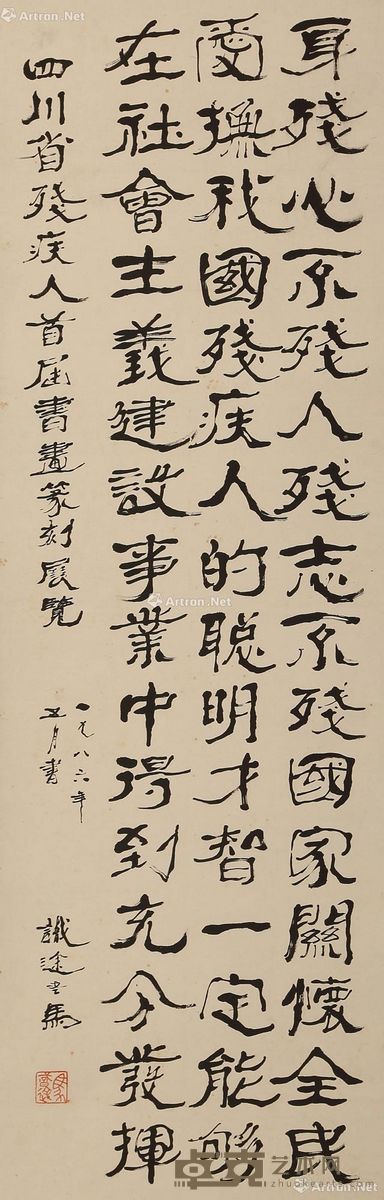 身殘心不殘人殘志不殘國家關懷全民
愛撫我國殘疾人的聰明才智一定能夠
在社會主義建設事業中得到充分發揮
四川省殘疾人首屆書畫篆刻展覽
一九八六年
五月書
識途老馬
Artron.Net
Artron.Net
Artron.Net
Artron.Net
Artron.Net
卓克艺术网